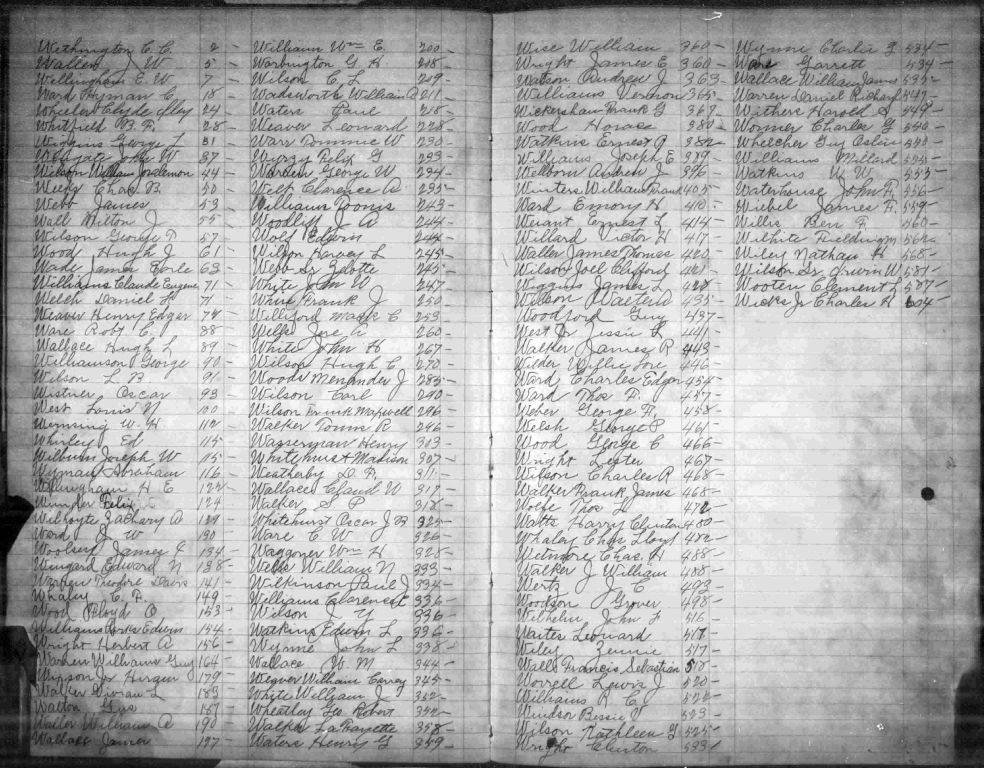 Wethington C. C. 2
Waller J W 5
Wellingham E. W 7
Ward Hyman C. 18
Wheeler Clyde Clay 24
Whitfield B. F. 28
Wiggins George L 31
John W 37
Wilson William Jos 44
Chas B. 50
Webb James 53
Wall Milton J 55
Wilson George T. 57
Wood Hugh J 61
Wade James Earle 63
Williams Claude Eugene 71
Welch Daniel F. 71
Weaver Henry Edgar 74
Ware Robt C. 88
Wallace Hugh L 89
Williamson George 90
Wilson L B 91
Wistner Oscar 93
West Louis N 100
W. H 112
Whirley Ed 115
Wilburn Joseph W 115
Wyman Abraham 116
Willingham H E 122
Felix 124
Wilhoyte Zachary A 129
Ward J W 130
Woolsey James E 134
Wingard Edward N 138
Warren Theodore Davis 141
Whaley C. F. 149
Wood Floyd O 153
Williams Parks Edwin 154
Wright Herbert A 156
Warren William Guy 164
Jr Hiram 179
Walter Vivian L 183
Walton Gus 187
Waller William A 190
Wallace James 197
William Wm E. 200
Warbington G H 208
Wilson C L 209
Wadsworth William A 211
Waters Paul 218
Weaver Leonard 228
Warr Tommie W 230
Felix G 233
Warden George W 234
Welf Clarence A 235
Williams Toomis 243
Woodliff J A 244
Wolf Edwin 244
Wilson Harvey L 245
Webb Sr 245
White John W 247
White Frank J 250
Williford Mark C 253
Wells Joe A 260
White John H 267
Wilson Hugh C 270
Woods Menander J 285
Wilson Carl 290
Wilson Maxwell 296
Walker Tomie R 296
Wasserman Henry 303
Whitehurst Madison 307
Weatherby D. F. 311
Wallace Claud W 317
Walker S P 318
Whitehurst Oscar J B 325
Ware C W 326
Waggoner Wm H 328
Wells William N 333
Wilkinson Paul J 334
Williams Clarence E 336
Wilson J Y 336
Watkins Edwin L 336
Wynne John L 338
Wallace W. M 344
Weaver William Carray 345
White William J 352
Wheatley Geo Robert 352
Walker La Fayette 358
Waters Henry G 359
Wise William 360
Wright James E 360
Watson Andrew J 363
Williams Vernon 365
Wickersham Frank G 367
Wood Horace 380
Watkins Ernest A 382
Williams Joseph E 389
Welborn Andrew J 396
Winters William Frank 405
Ward Emory H 410
Weiant Ernest L 414
Willard Victor H 417
Waller James Thomas 420
Wilson Joel Clifford 421
Wiggins James L 428
Wilson Walter A 435
Woodford Guy 437
West Jr Jessie F 441
Walker James R 443
Wilder Wylie Lore 446
Ward Charles Edgar 454
Ward Thos F. 457
Weber George F. 458
Welsh George P 461
Wood George C 466
Wright Lester 467
Wilson Charles R 468
Walker Frank James 468
Wolfe Thos H 472
Watts Harry Clinton 480
Whaley Chas Lloyd 482
Wetmore Chas. H 488
Walker J William 488
Wertz J E 493
Woodson Grover 498
Wilhelm John F 516
Waiter Leonard 517
Wiley Zennie 517
Walls Francis Sebastian 518
Worrell Lewis J 520
Williams R. C. 522
Windsor Bessie V 523
Wilson Kathleen G 525
Wright Clinton 533
Wynne Charlie G 534
Ware Garrett 534
Wallace William James 535
Warren Daniel Richard 547
Withers Harold S 549
Wormer Charles G 550
Wheetcher Guy 550
Williams Millard 555
Watkins W W 555
Waterhouse John F. 556
Wiebel James F. 559
Willis Ben F. 560
Wilhite Fielding M 562
Wiley Nathan H 568
Wilson Sr. Orwin W 581
Wooten Clement L 587
Wicke Jr Charles H 604